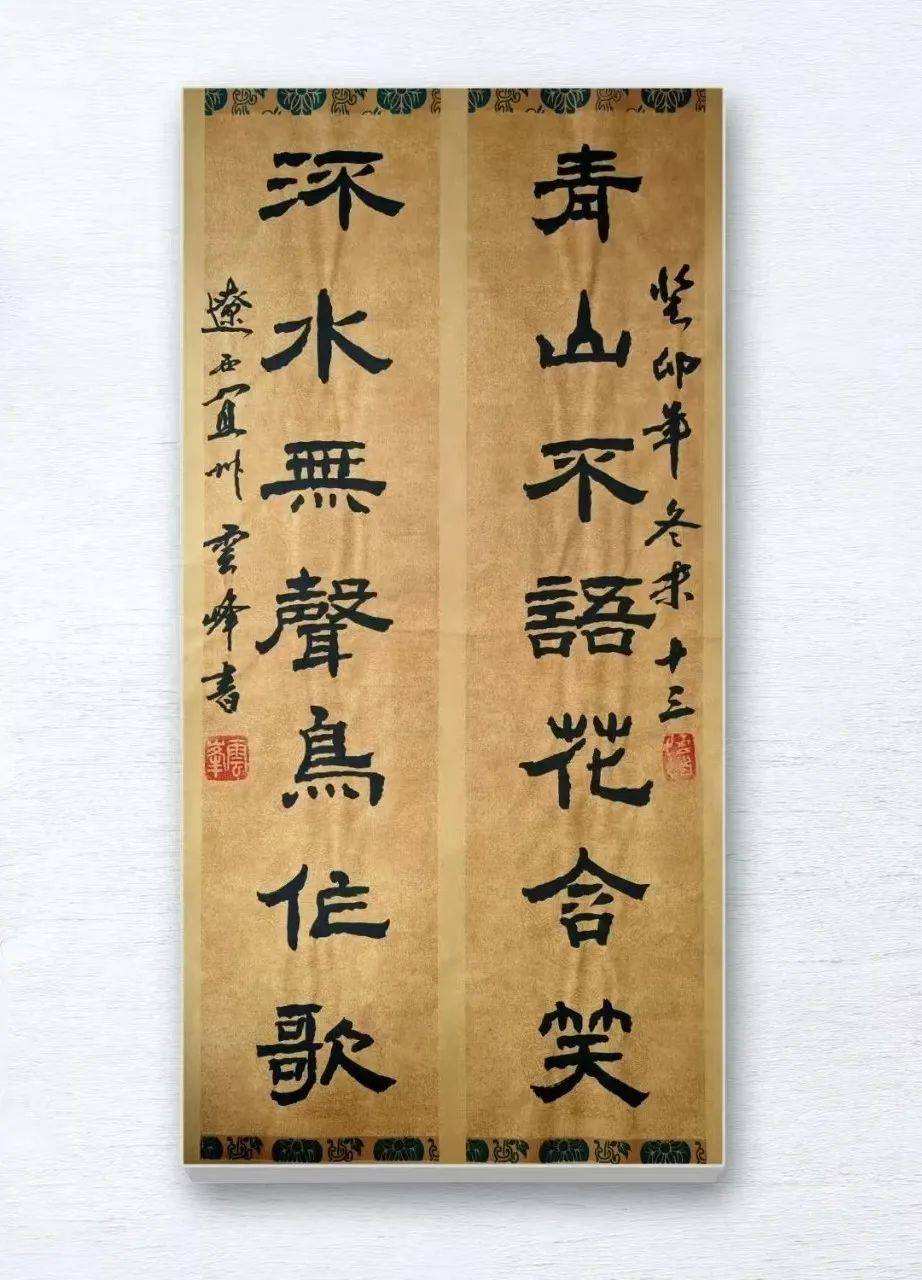 癸卯年冬末十三
青山不語花含笑
流水無聲鳥作歌
遼西宜州雲峰書
雲峯